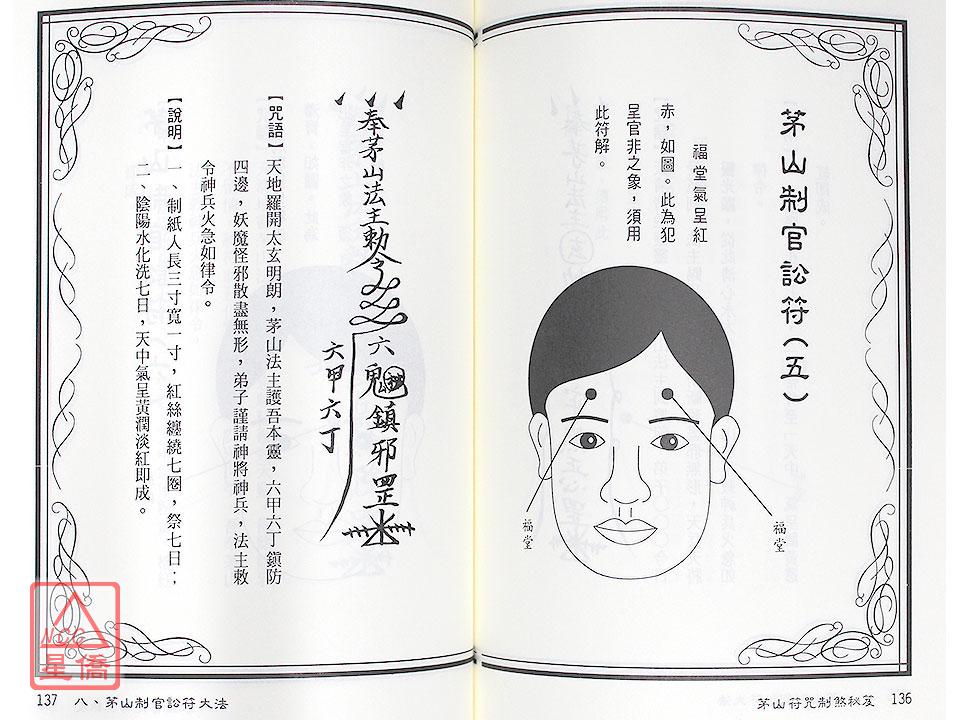 茅山制官訟符(五)
福堂氣呈紅
赤,如圖。此為犯
呈官非之象,須用
此符解。
福堂
福堂
茅山符咒制煞秘笈 136
奉茅山法主勅令
六
鎮邪罡
六甲六丁
【咒語】天地羅開太玄明朗,茅山法主護吾本靈,六甲六丁鎮防
四邊,妖魔怪邪散盡無形,弟子謹請神將神兵,法主敕
令神兵火急如律令。
【說明】一、制紙人長三寸寬一寸,紅絲纏繞七圈,祭七日;
二、陰陽水化洗七日,天中氣呈黃潤淡紅即成。
137 八、茅山制官訟符大法
NCC
星僑